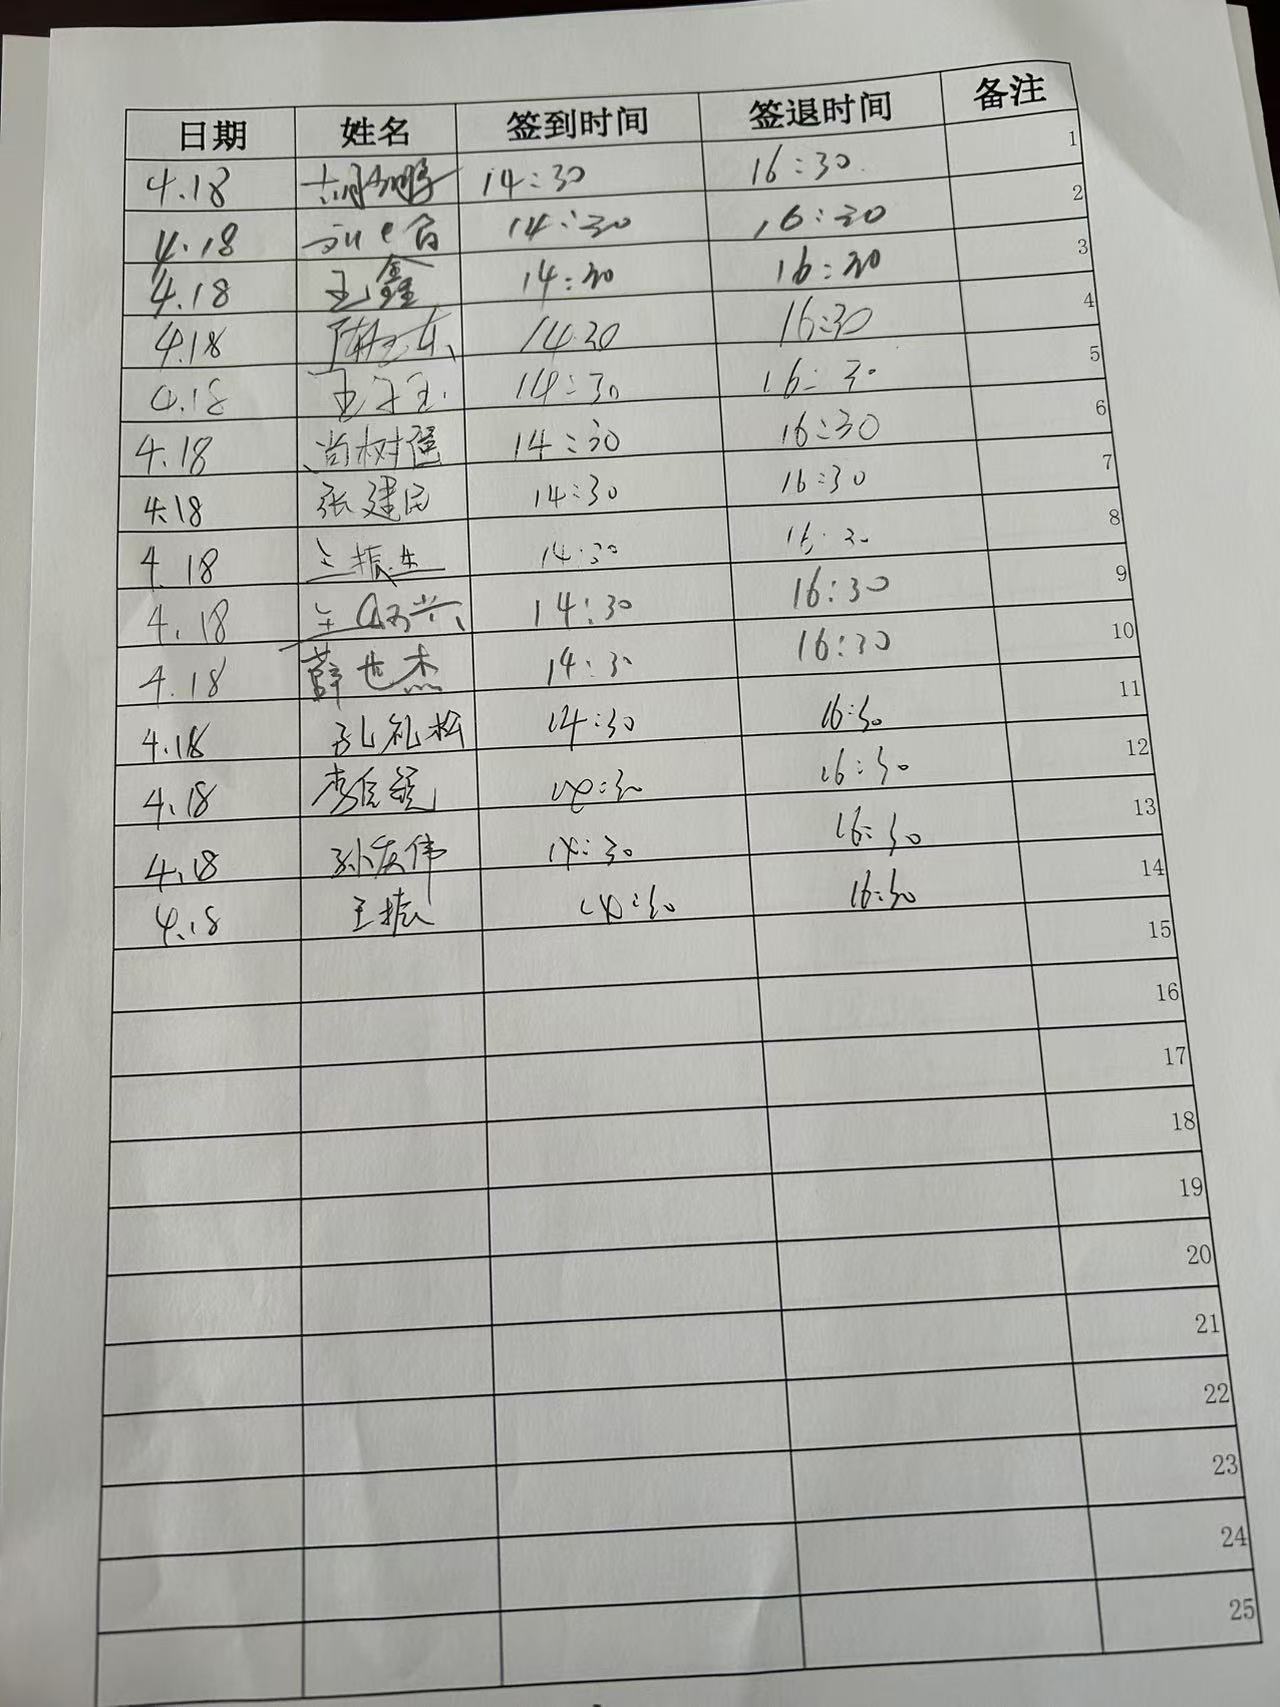 日期 姓名 签到时间 签退时间 备注
4.18 14:30 16:30 1
4.18 14:30 16:30 2
4.18 王鑫 14:30 16:30 3
4.18 14:30 16:30 4
4.18 王子玉 14:30 16:30 5
4.18 尚树 14:30 16:30 6
4.18 张建民 14:30 16:30 7
4.18 王振 14:30 16:30 8
4.18 14:30 16:30 9
4.18 薛世杰 14:30 16:30 10
4.18 孔礼松 14:30 16:30 11
4.18 李 14:30 16:30 12
4.18 孙友伟 14:30 16:30 13
4.18 王振 14:30 16:30 14
15
16
17
18
19
20
21
22
23
24
25